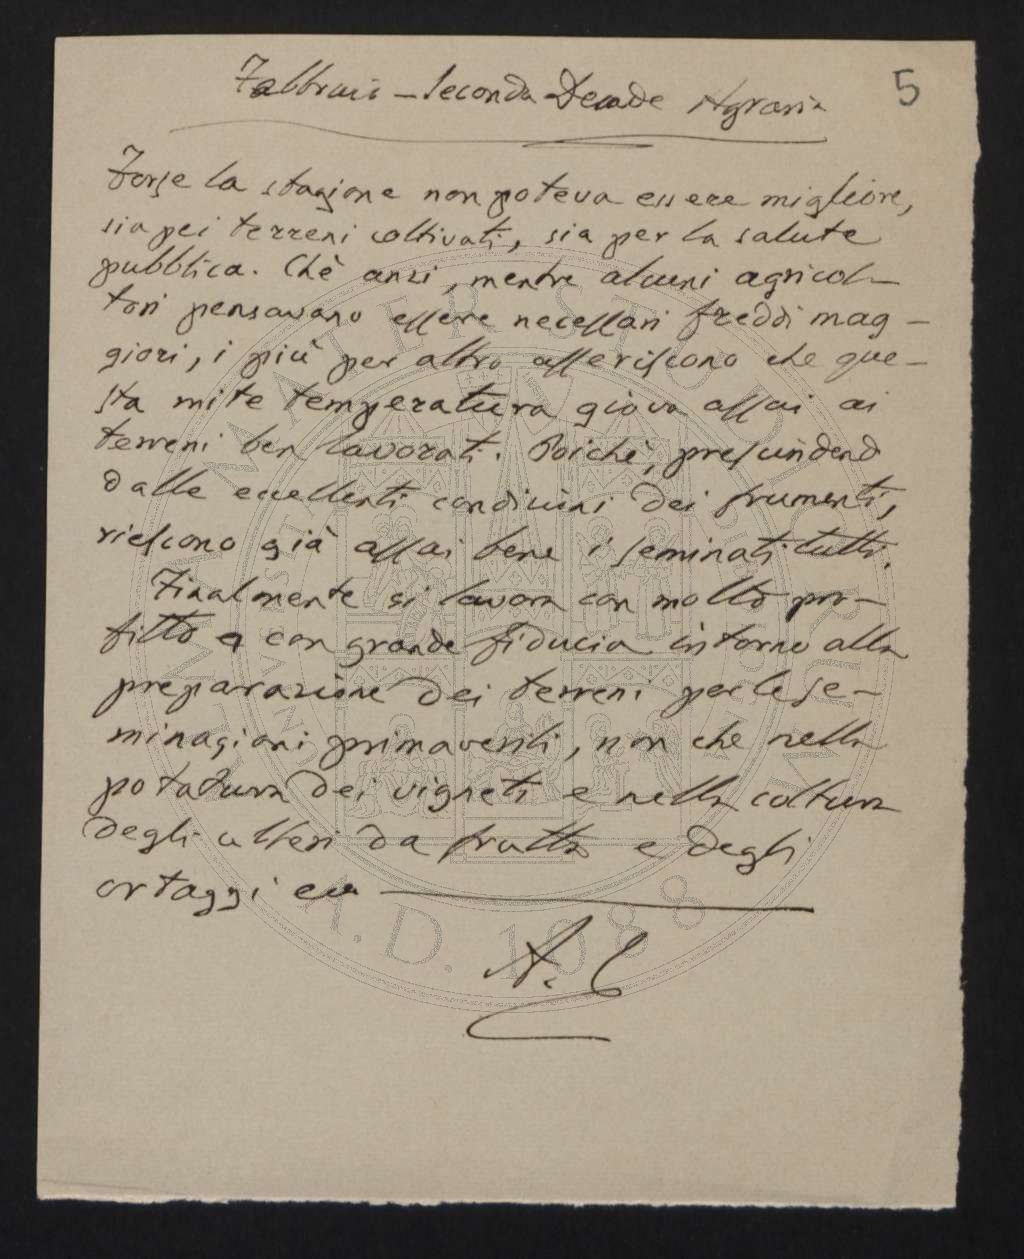 Febbraio – Seconda Decade Agraria
5
Forse la stagione non poteva essere migliore,
sia pei terreni coltivati, sia per la salute
pubblica. Chè anzi, mentre alcuni agricol-
tori pensavano essere necessari freddi mag-
giori, i più per altro asseriscono che que-
sta mite temperatura giova assai ai
terreni ben lavorati. Poichè, prescindendo
dalle eccellenti condizioni dei frumenti,
riescono già assai bene i seminati tutti.
Finalmente si lavora con molto pro-
fitto e con grande fiducia intorno alla
preparazione dei terreni per le se-
minagioni primaverili, non che nella
potatura dei vigneti e nella coltura
degli alberi da frutta e degli
ortaggi ecc
A. C
ALMA MATER STUDIORUM
A.D. 1088